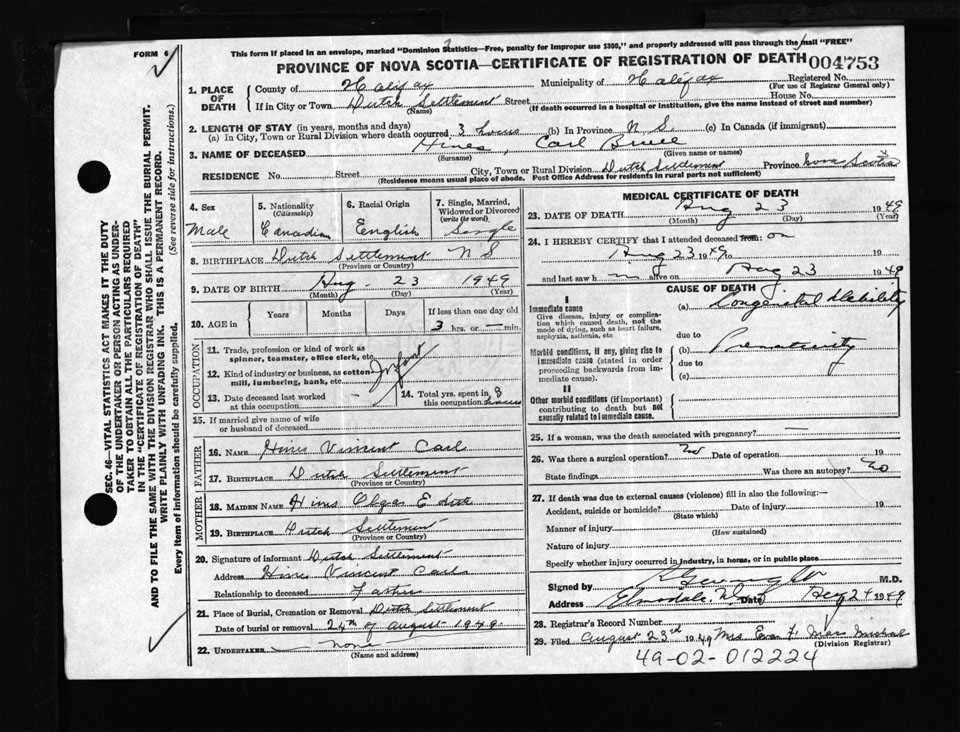 FORM 6
This form if placed in an envelope, marked "Dominion Statistics—Free, penalty for improper use $300," and properly addressed will pass through the mail "FREE"
PROVINCE OF NOVA SCOTIA—CERTIFICATE OF REGISTRATION OF DEATH 004753
SEC. 46—VITAL STATISTICS ACT MAKES IT THE DUTY
OF THE UNDERTAKER OR PERSON ACTING AS UNDER-
TAKER TO OBTAIN ALL THE PARTICULARS REQUIRED
IN THE "CERTIFICATE OF REGISTRATION OF DEATH"
AND TO FILE THE SAME WITH THE DIVISION REGISTRAR WHO SHALL ISSUE THE BURIAL PERMIT.
WRITE PLAINLY WITH UNFADING INK. THIS IS A PERMANENT RECORD.
Every item of information should be carefully supplied. (See reverse side for instructions.)
1. PLACE OF DEATH
County of Halifax Municipality of Halifax Registered No.
(For use of Registrar General only)
If in City or Town Dutch Settlement Street House No.
(Name) (If death occurred in a hospital or institution, give the name instead of street and number)
2. LENGTH OF STAY (in years, months and days)
(a) In City, Town or Rural Division where death occurred 3 hours (b) In Province N.S. (c) In Canada (if immigrant)
3. NAME OF DECEASED Hines, Carl Bruce
(Surname) (Given name or names)
RESIDENCE No. Street City, Town or Rural Division Dutch Settlement Province Nova Scotia
(Residence means usual place of abode. Post Office Address for residents in rural parts not sufficient)
4. Sex Male
5. Nationality (Citizenship) Canadian
6. Racial Origin English
7. Single, Married, Widowed or Divorced (write the word) Single
8. BIRTHPLACE Dutch Settlement N S
(Province or Country)
9. DATE OF BIRTH Aug. 23 1949
(Month) (Day) (Year)
10. AGE in Years Months Days If less than one day old
3 hrs. or — min.
OCCUPATION
11. Trade, profession or kind of work as spinner, teamster, office clerk, etc.
12. Kind of industry or business, as cotton mill, lumbering, bank, etc. Infant
13. Date deceased last worked at this occupation —
14. Total yrs. spent in this occupation 3 hours
15. If married give name of wife or husband of deceased
FATHER
16. NAME Hines Vincent Carl
17. BIRTHPLACE Dutch Settlement
(Province or Country)
MOTHER
18. MAIDEN NAME Edith
19. BIRTHPLACE Dutch Settlement
(Province or Country)
20. Signature of informant Dutch Settlement
Address Hines Vincent Carl
Relationship to deceased Father
21. Place of Burial, Cremation or Removal Dutch Settlement
Date of burial or removal 24th of August 1949.
22. UNDERTAKER — none
(Name and address)
MEDICAL CERTIFICATE OF DEATH
23. DATE OF DEATH Aug 23 1949
(Month) (Day) (Year)
24. I HEREBY CERTIFY that I attended deceased from: on
Aug 23 1949 to 19
and last saw h m alive on Aug 23 1949
CAUSE OF DEATH
I
Immediate cause (a) Congenital debility
Give disease, injury or complication which caused death, not the mode of dying, such as heart failure, asphyxia, asthenia, etc
due to
Morbid conditions, if any, giving rise to immediate cause (stated in order proceeding backwards from immediate cause).
(b) Prematurity
due to
(c)
II
Other morbid conditions (if important) contributing to death but not causally related to immediate cause.
25. If a woman, was the death associated with pregnancy? —
26. Was there a surgical operation? No Date of operation 19
State findings Was there an autopsy? No
27. If death was due to external causes (violence) fill in also the following:—
Accident, suicide or homicide? Date of injury 19
(State which)
Manner of injury
(How sustained)
Nature of injury
Specify whether injury occurred in industry, in home, or in public place
Signed by M.D.
Address Elmsdale, Date Aug 24 1949
28. Registrar's Record Number
29. Filed August 23rd 1949 Mrs.
(Division Registrar)
49-02-012224